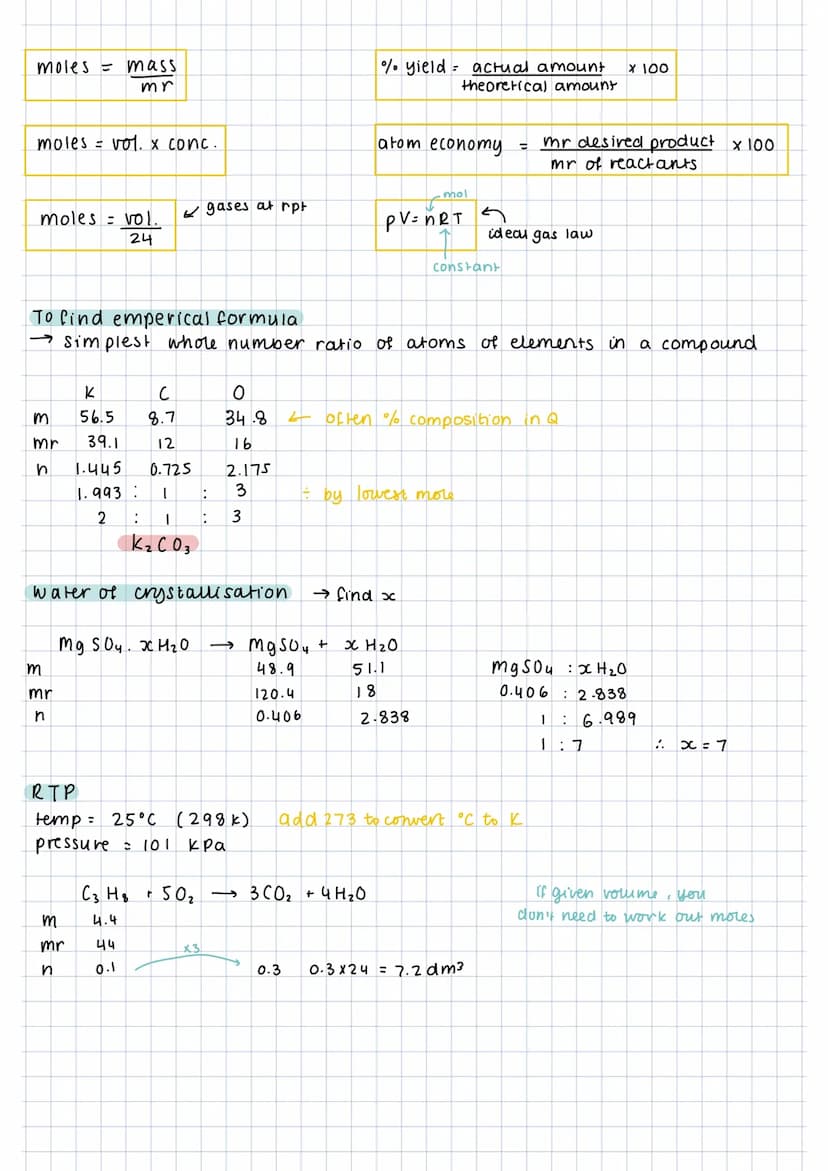 moles = mass
mr
% yield = actual amount x 100
theoretical amount
moles = vol. x conc.
atom economy = mr desired product x 100
mr of reactants
moles = vol.
24
↙ gases at rpt
mol
pV = nRT
ideal gas law
constant
To find emperical formula
→ simplest whole number ratio of atoms of elements in a compound
K C O
m 56.5 8.7 34.8 ← often % composition in Q
mr 39.1 12 16
n 1.445 0.725 2.175
1.993 : 1 : 3 ÷ by lowest mole
2 : 1 : 3
K₂CO₃
Water of crystallisation → find x
MgSO₄.xH₂O → MgSO₄ + xH₂O
m 48.9 51.1
mr 120.4 18
n 0.406 2.838
MgSO₄ : xH₂O
0.406 : 2.838
1 : 6.989
1 : 7 ∴ x = 7
RTP
temp = 25°C (298k) add 273 to convert °C to K
pressure = 101 kPa
C₃H₈ + 5O₂ → 3CO₂ + 4H₂O
m 4.4
mr 44
x3
n 0.1 0.3 0.3 x 24 = 7.2 dm³
If given volume, you
don't need to work out moles